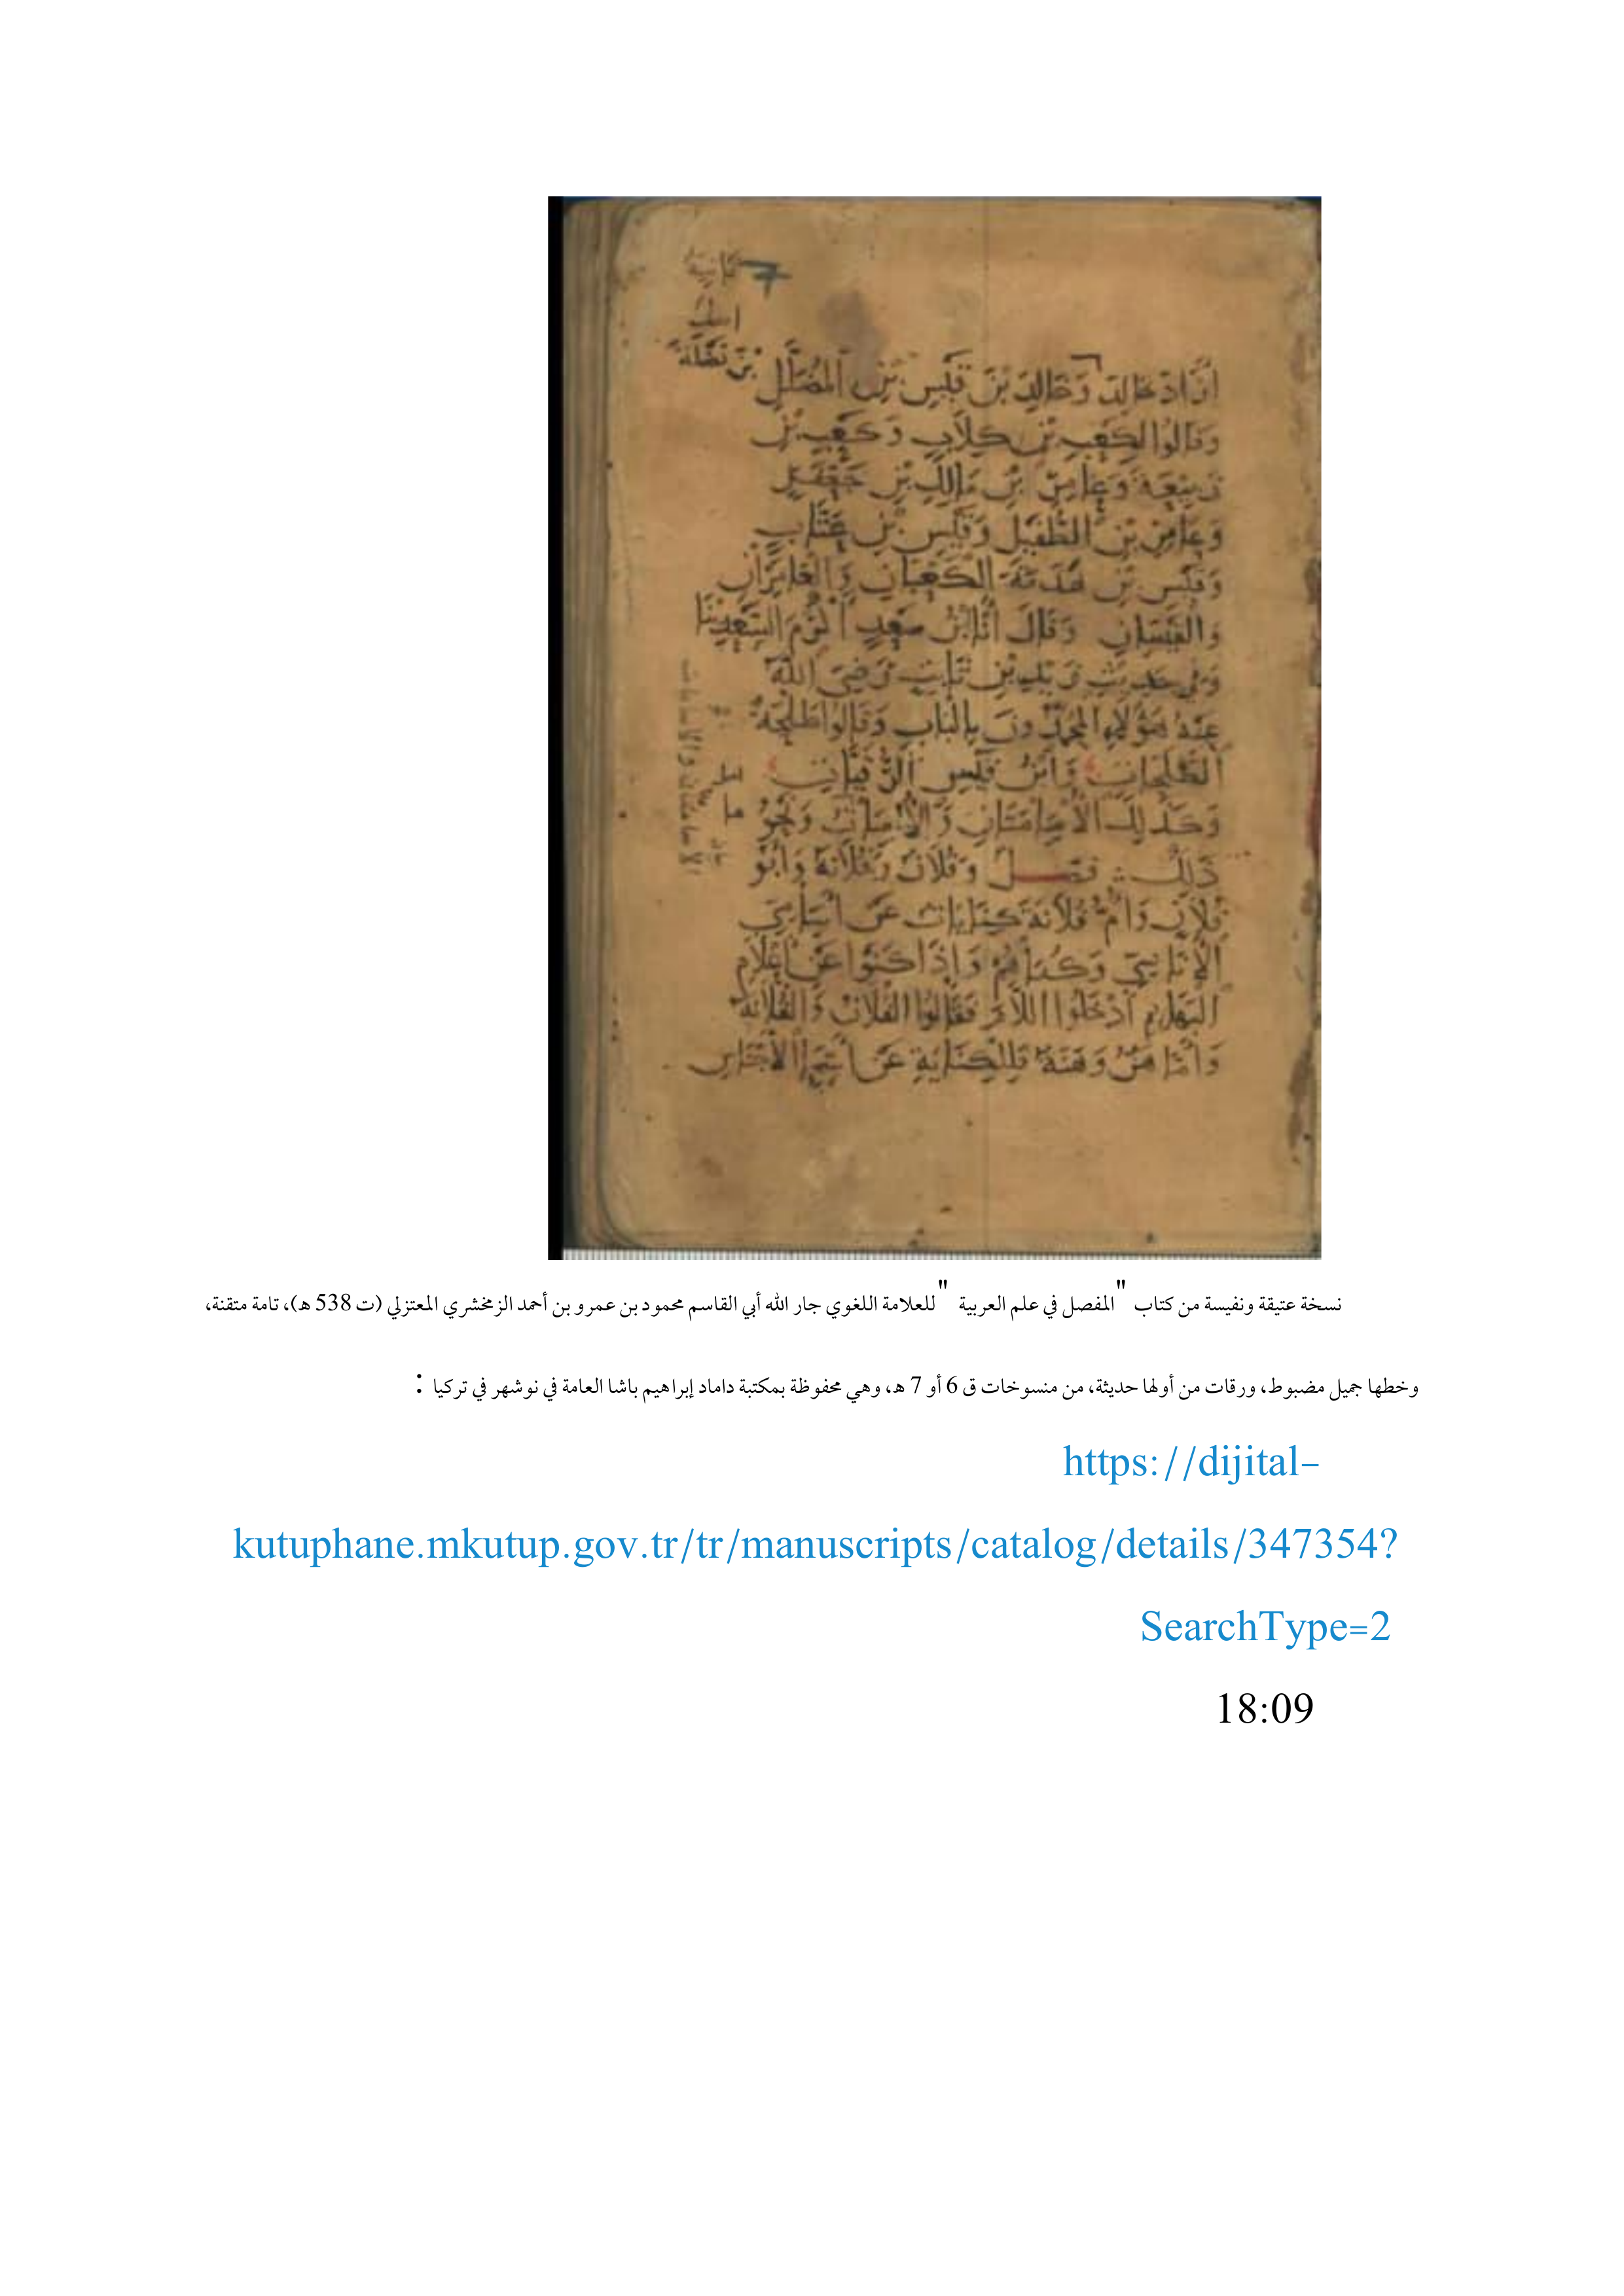 ثانية
بن نضلة
أراد خالد وخالد بن قيس بن المضلل
وقالوا لكعب بن كلاب وكعب بن
ربيعة وعامر بن مالك بن جعفر
وعامر بن الطفيل وقيس بن عتاب
وقيس بن هذمة الكعبان والعامران
والقيسان وقال أنا ابن سعد أكرم السعدينا
وفي حديث زيد بن ثابت رضي الله
عنه هؤلاء المحمدون بالباب وقالوا طلحة
الطلحات وابن قيس الرقيات
وكذلك الأسامتان والأسامات ونحو
ذلك فصل وفلان وفلانة وأبو
فلان وأم فلانة كنايات عن أسامي
الأناسي وكناهم وإذا كنوا عن أعلام
البهائم أدخلوا اللام فقالوا الفلان والفلانة
وأما هن وهنة فللكناية عن أسماء الأجناس
نسخة عتيقة ونفيسة من كتاب "المفصل في علم العربية " للعلامة اللغوي جار الله أبي القاسم محمود بن عمرو بن أحمد الزمخشري المعتزلي (ت 538 هـ)، تامة متقنة،
وخطها جميل مضبوط، ورقات من أولها حديثة، من منسوخات ق 6 أو 7 هـ، وهي محفوظة بمكتبة داماد إبراهيم باشا العامة في نوشهر في تركيا :
https://dijital-
kutuphane.mkutup.gov.tr/tr/manuscripts/catalog/details/347354?
SearchType=2
18:09